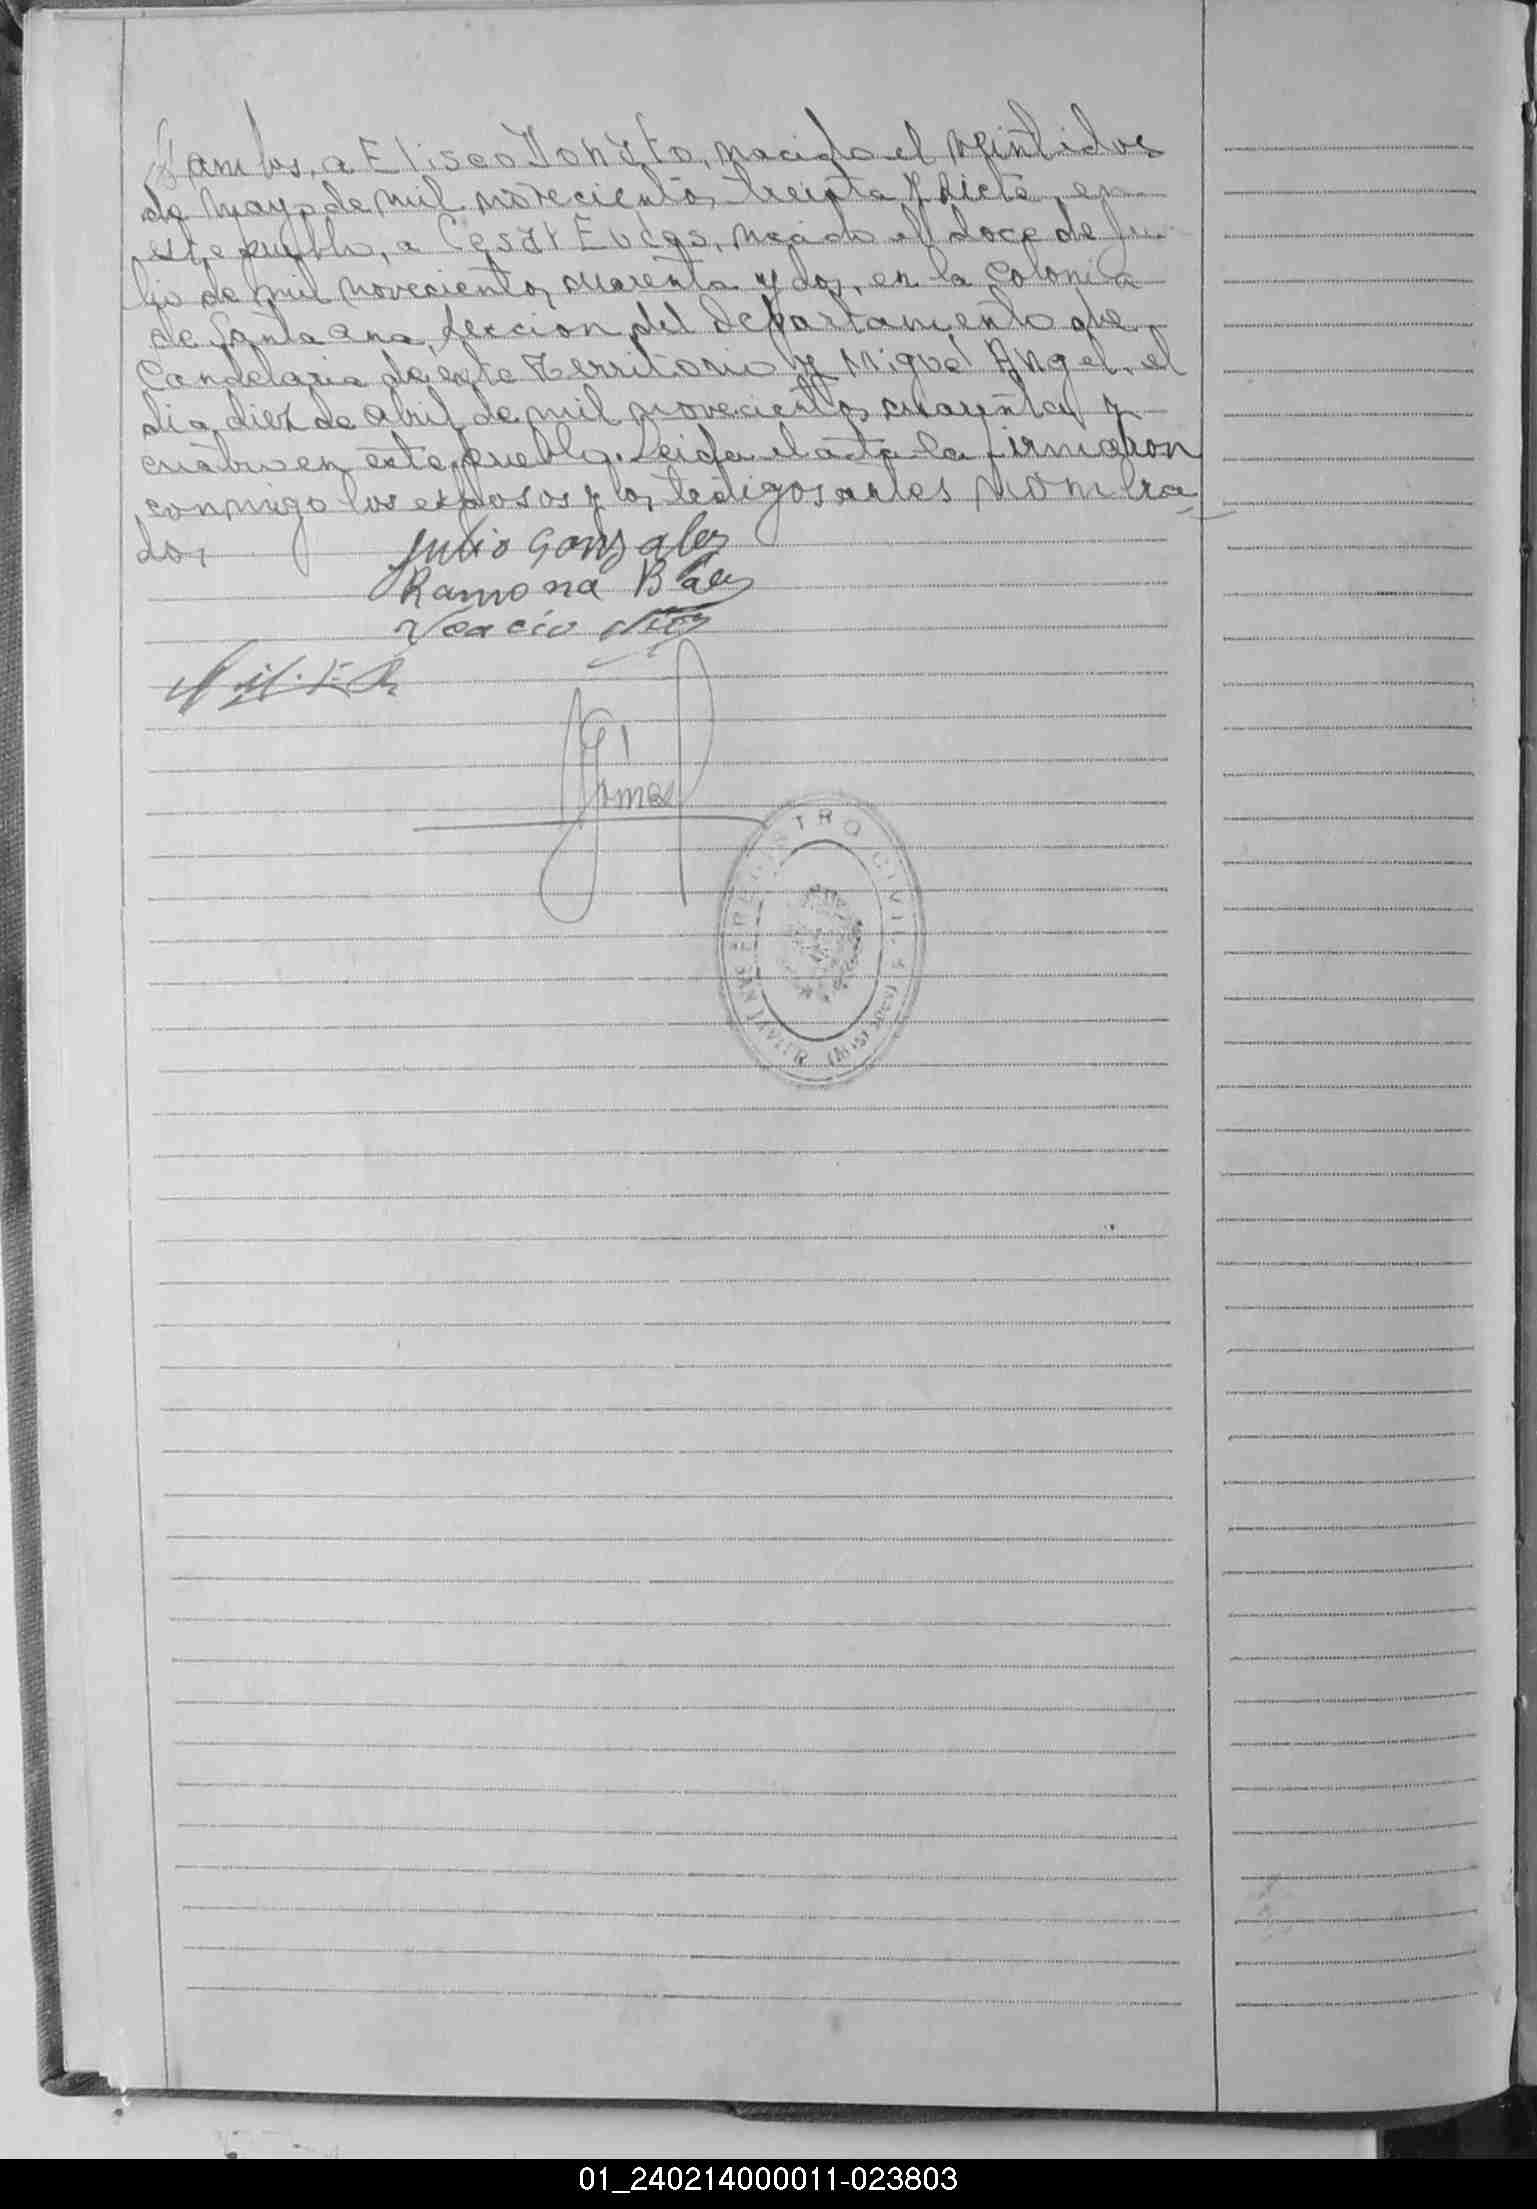 ambos, a Eliseo Donato, nacido el veintidos
de Mayo de mil novecientos treinta y siete, en
este pueblo, a Cesar Eudes, nacido el doce de Ju-
lio de mil novecientos cuarenta y dos, en la Colonia
de Santa Ana, seccion del Departamento de
Candelaria de este Territorio y Miguel Angel, el
dia diez de abril de mil novecientos cuarenta y
cuatro en este pueblo. Leida el acta la firmaron
conmigo los esposos y los testigos antes nombra-
dos
Julio Gonzales
Ramona Baez
Gomez
REGISTRO CIVIL
SAN JAVIER (Misiones)
01_240214000011-023803